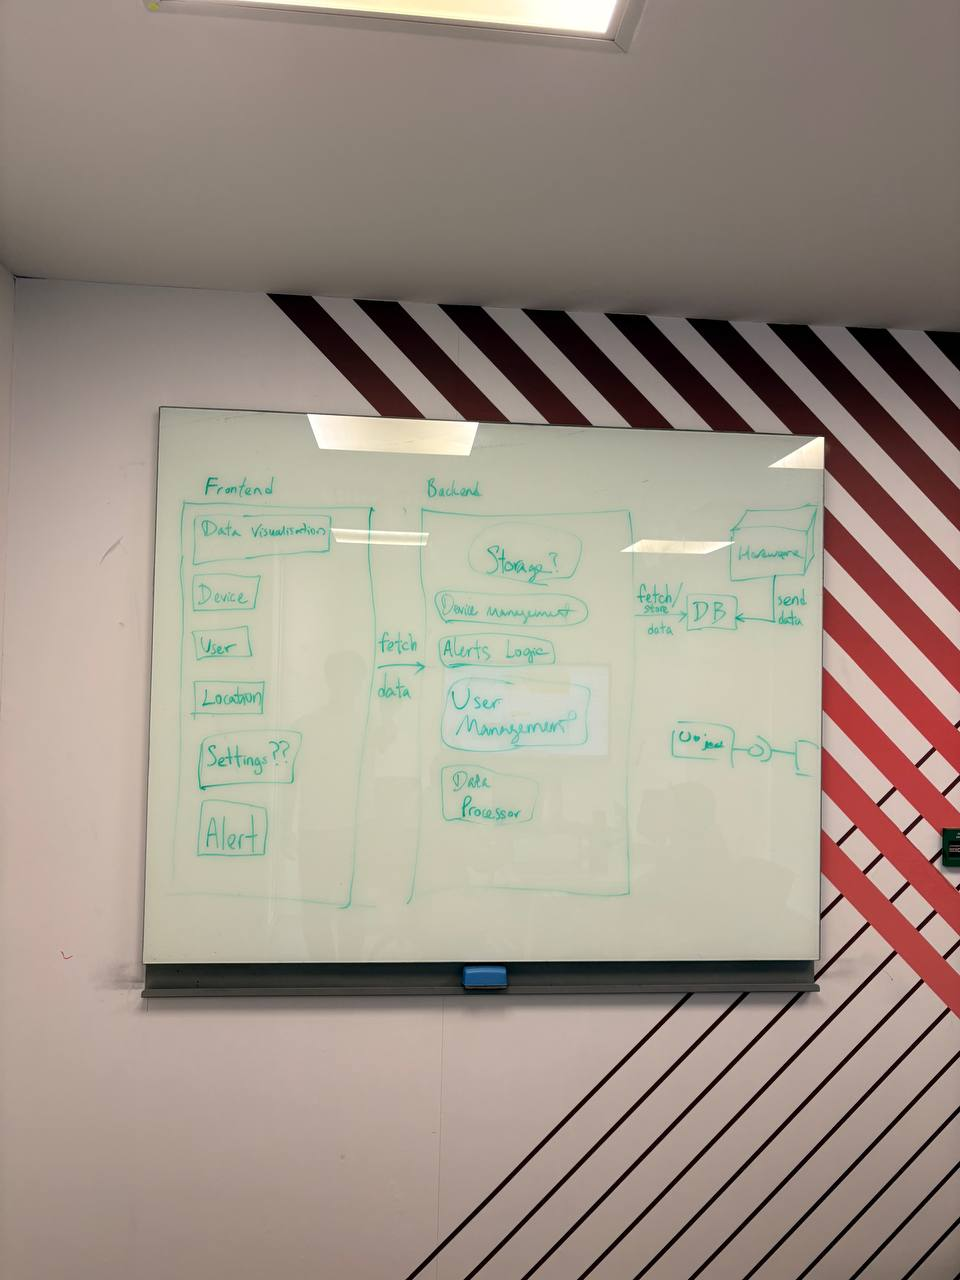 Frontend
Data Visualisation
Device
User
Location
Settings??
Alert
fetch
data
Backend
Storage?
Device management
Alerts Logic
User
Management
Data
Processor
fetch/
store
data
DB
Hardware
send
data